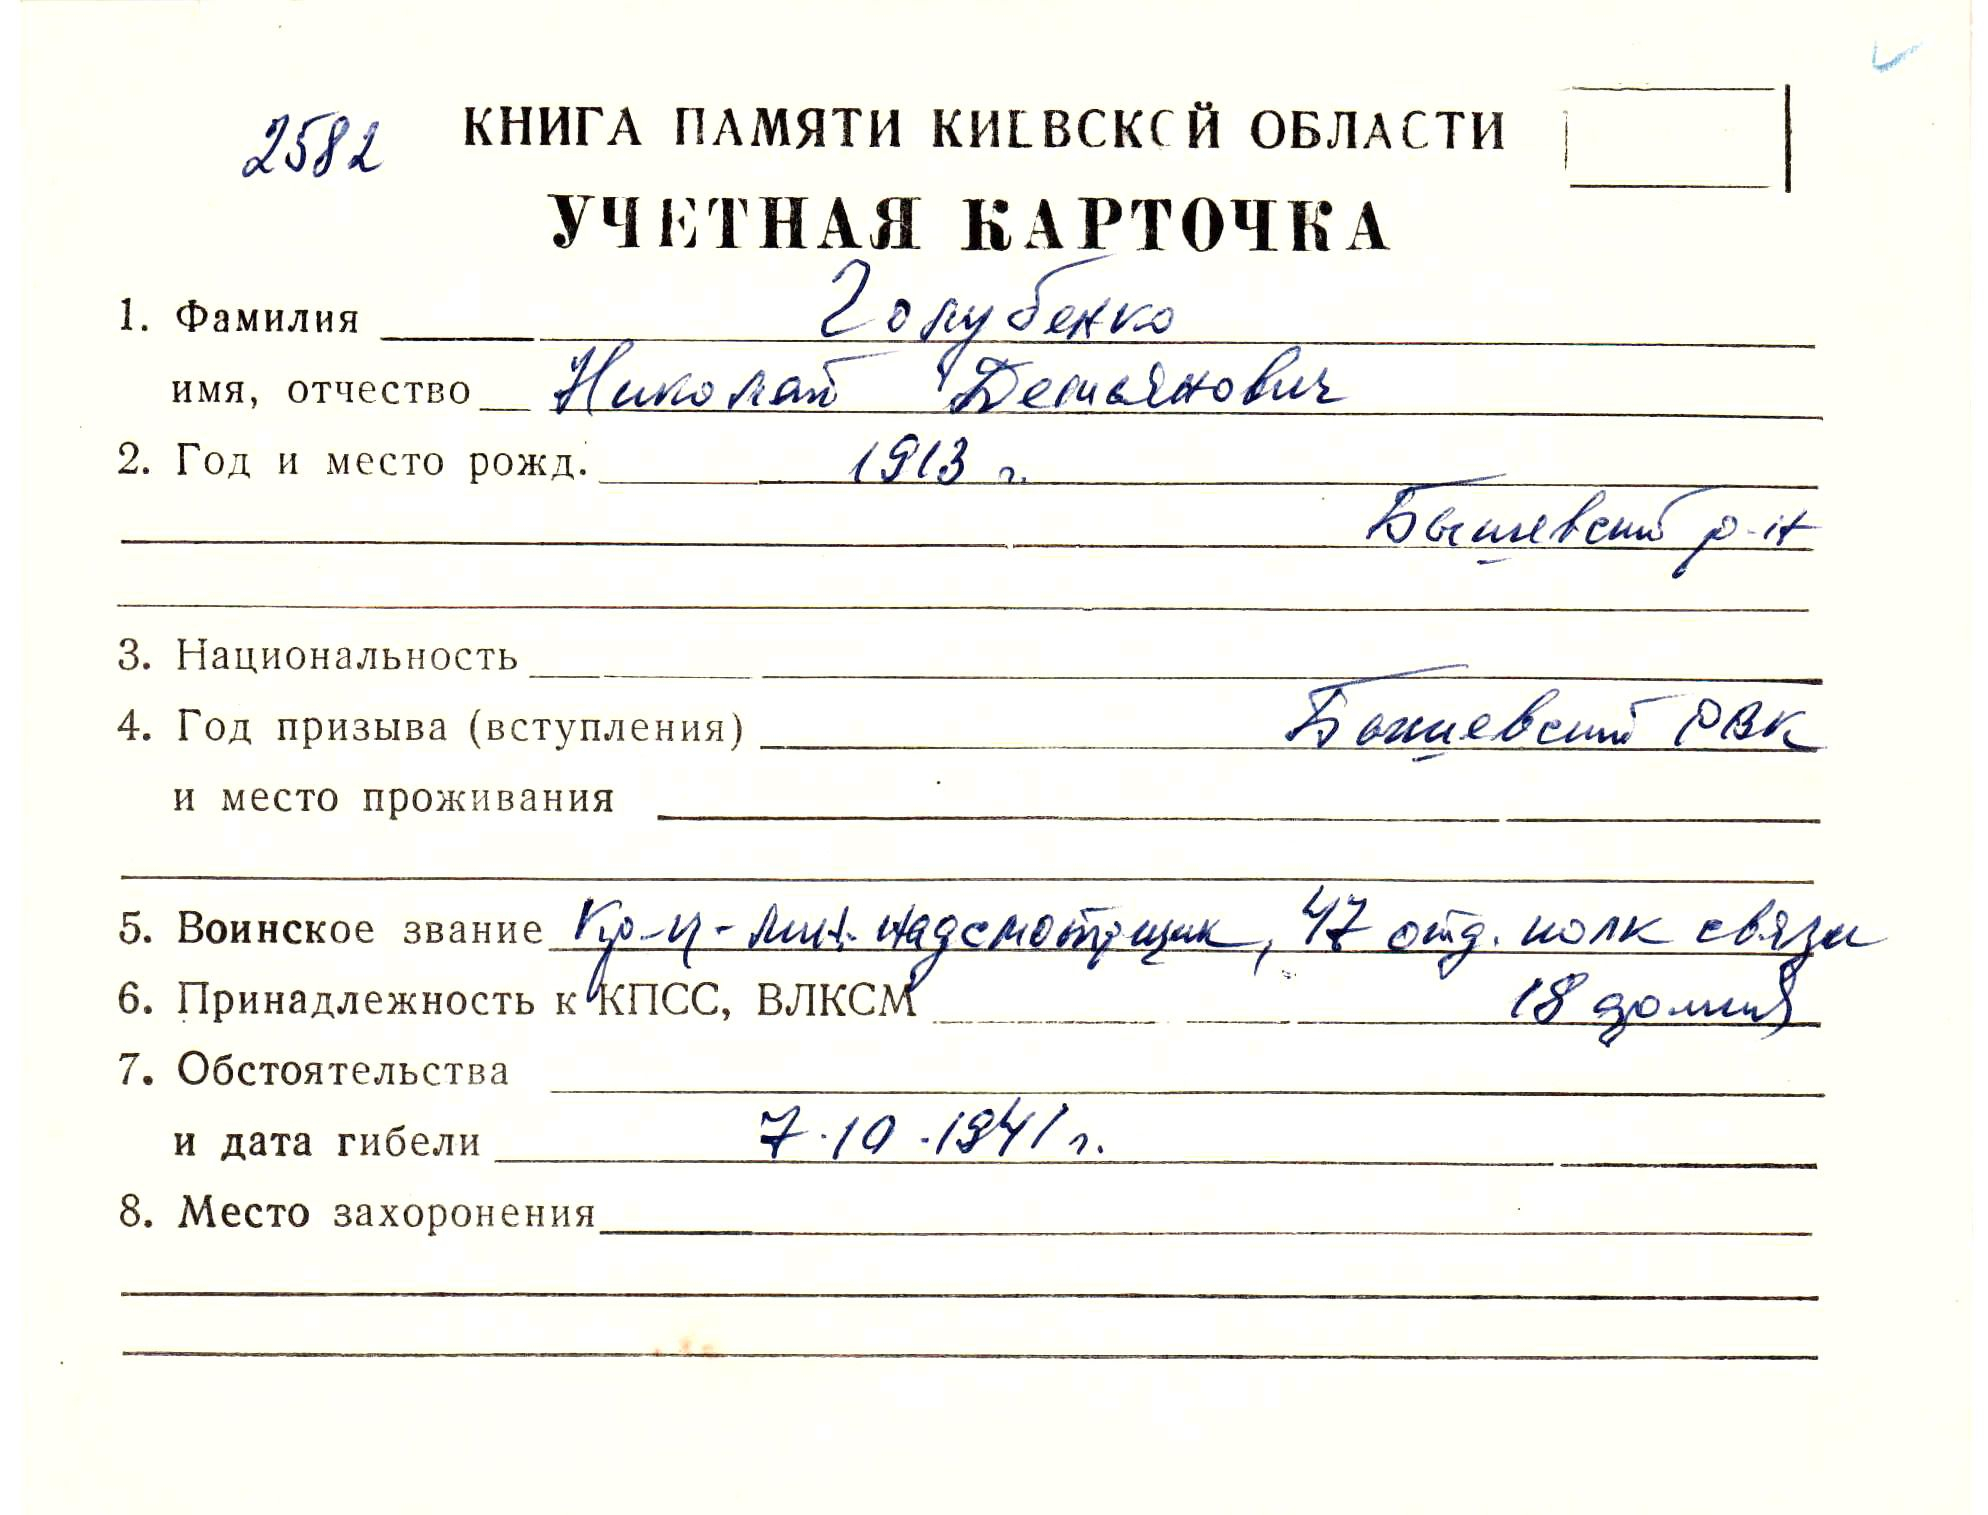 2582
КНИГА ПАМЯТИ КИЕВСКОЙ ОБЛАСТИ
УЧЕТНАЯ КАРТОЧКА
1. Фамилия Голубенко
имя, отчество Николай Демьянович
2. Год и место рожд. 1913 г.
Бышевский р-н
3. Национальность
4. Год призыва (вступления) Бышевский РВК
и место проживания
5. Воинское звание Кр-ц-лин. надсмотрщик, 47 отд. полк связи
6. Принадлежность к КПСС, ВЛКСМ 18 армия
7. Обстоятельства
и дата гибели 7.10.1941 г.
8. Место захоронения